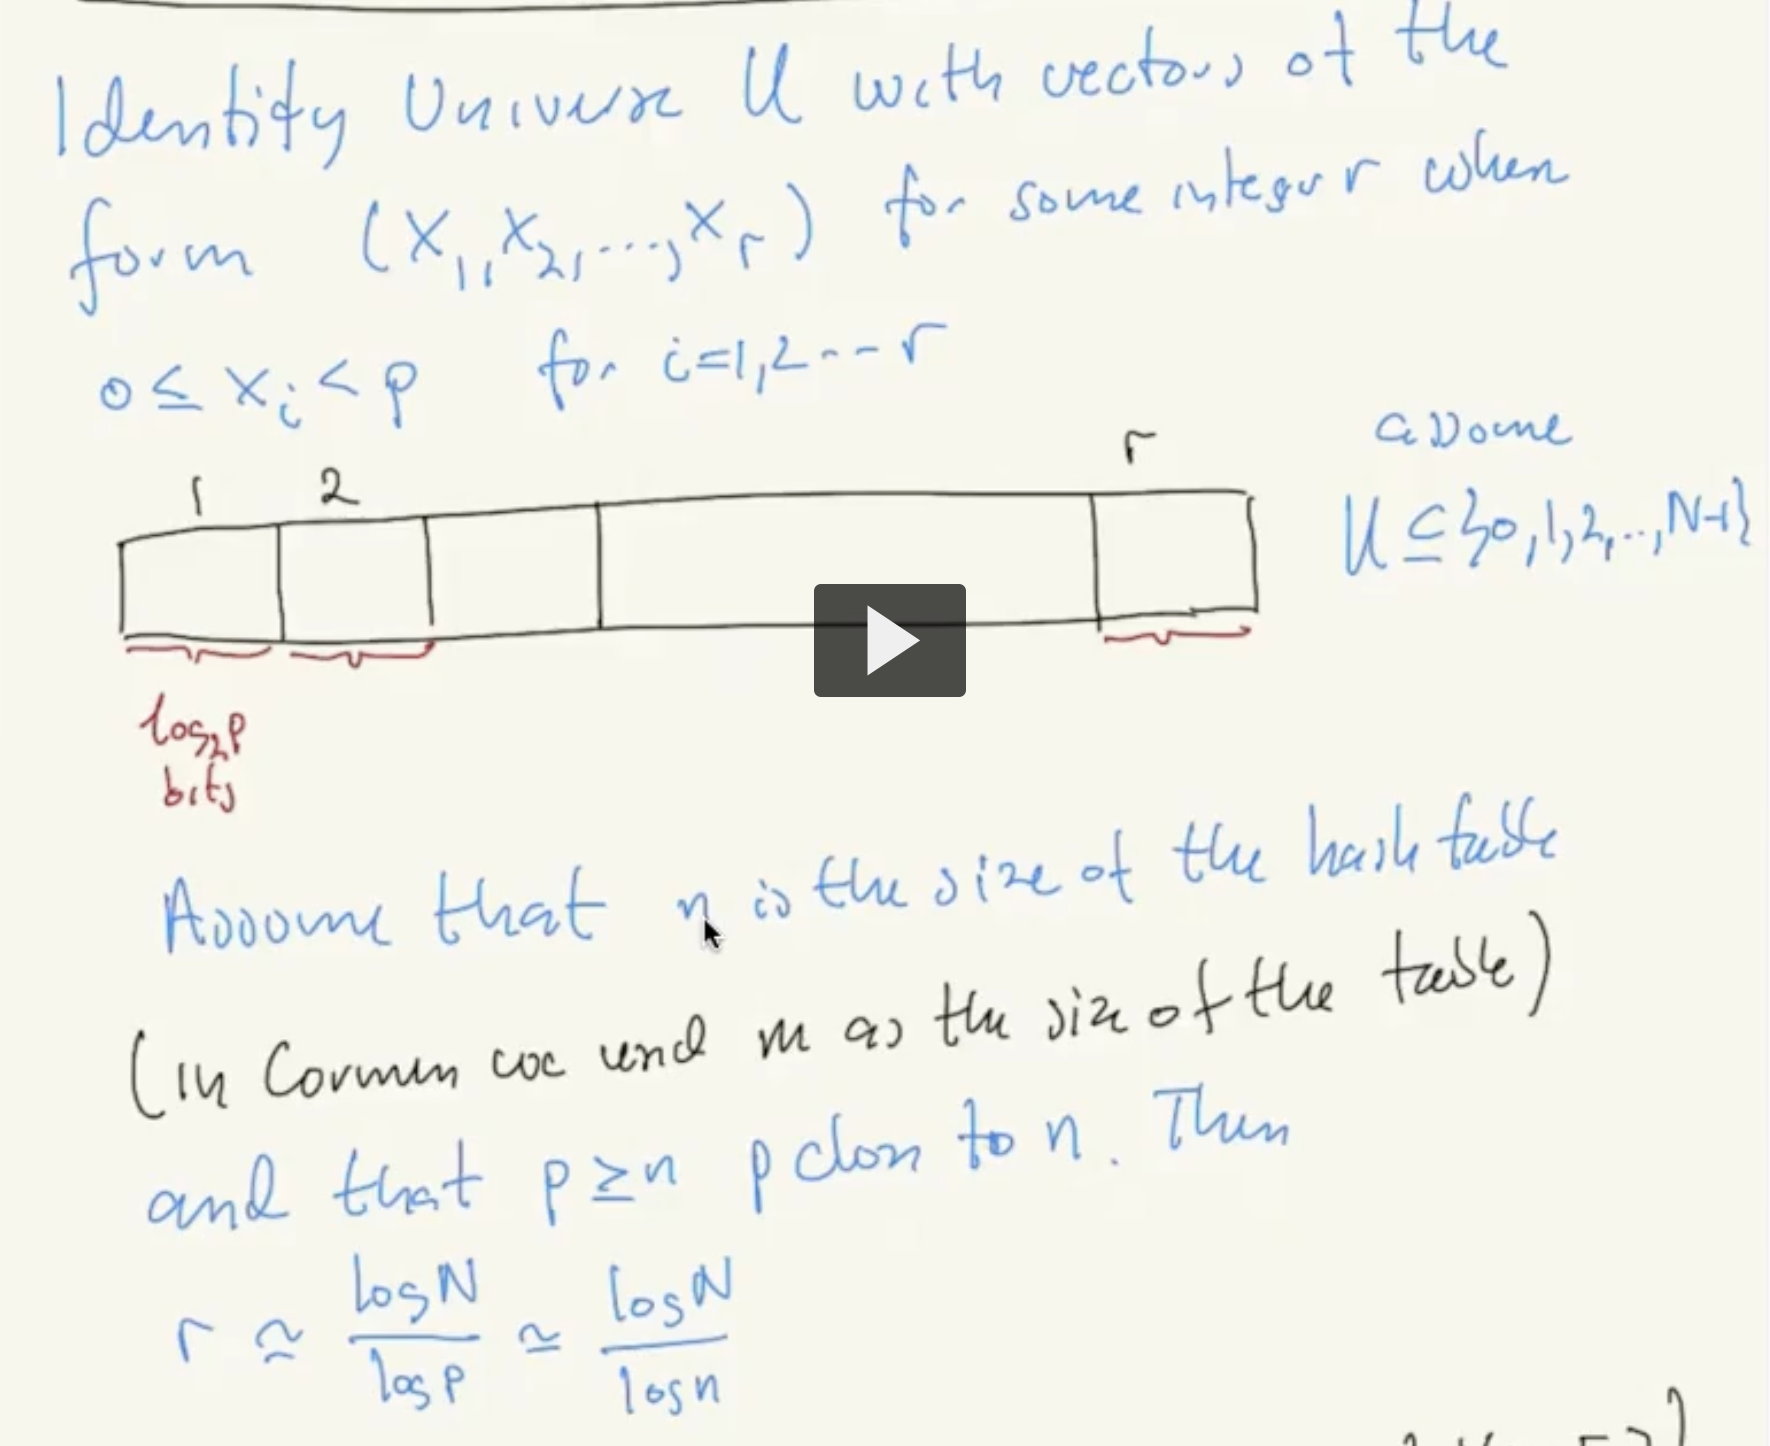 Identify Universe U with vectors of the
form (x₁, x₂, ..., x_r) for some integer r when
0 ≤ x_i < p for i=1,2--r
assume
1 2 r
U ⊆ {0,1,2,..,N-1}
log₂p
bits
Assume that n is the size of the hash table
(in Cormen we used m as the size of the table)
and that p ≥ n p close to n. Then
r ≃ log N / log p ≃ log N / log n